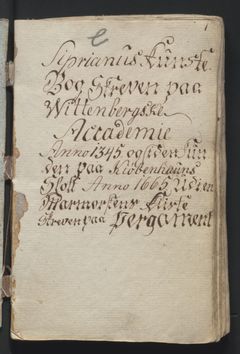 1
Siprianus Kunste
Bog Skreven paa
Wittenbergske
Accademie
Anno 1345 og siden fun
den paa Kiøbenhauns
Slott Anno 1665 Udi en
Marmorstens Kiste
skreven paa pergament